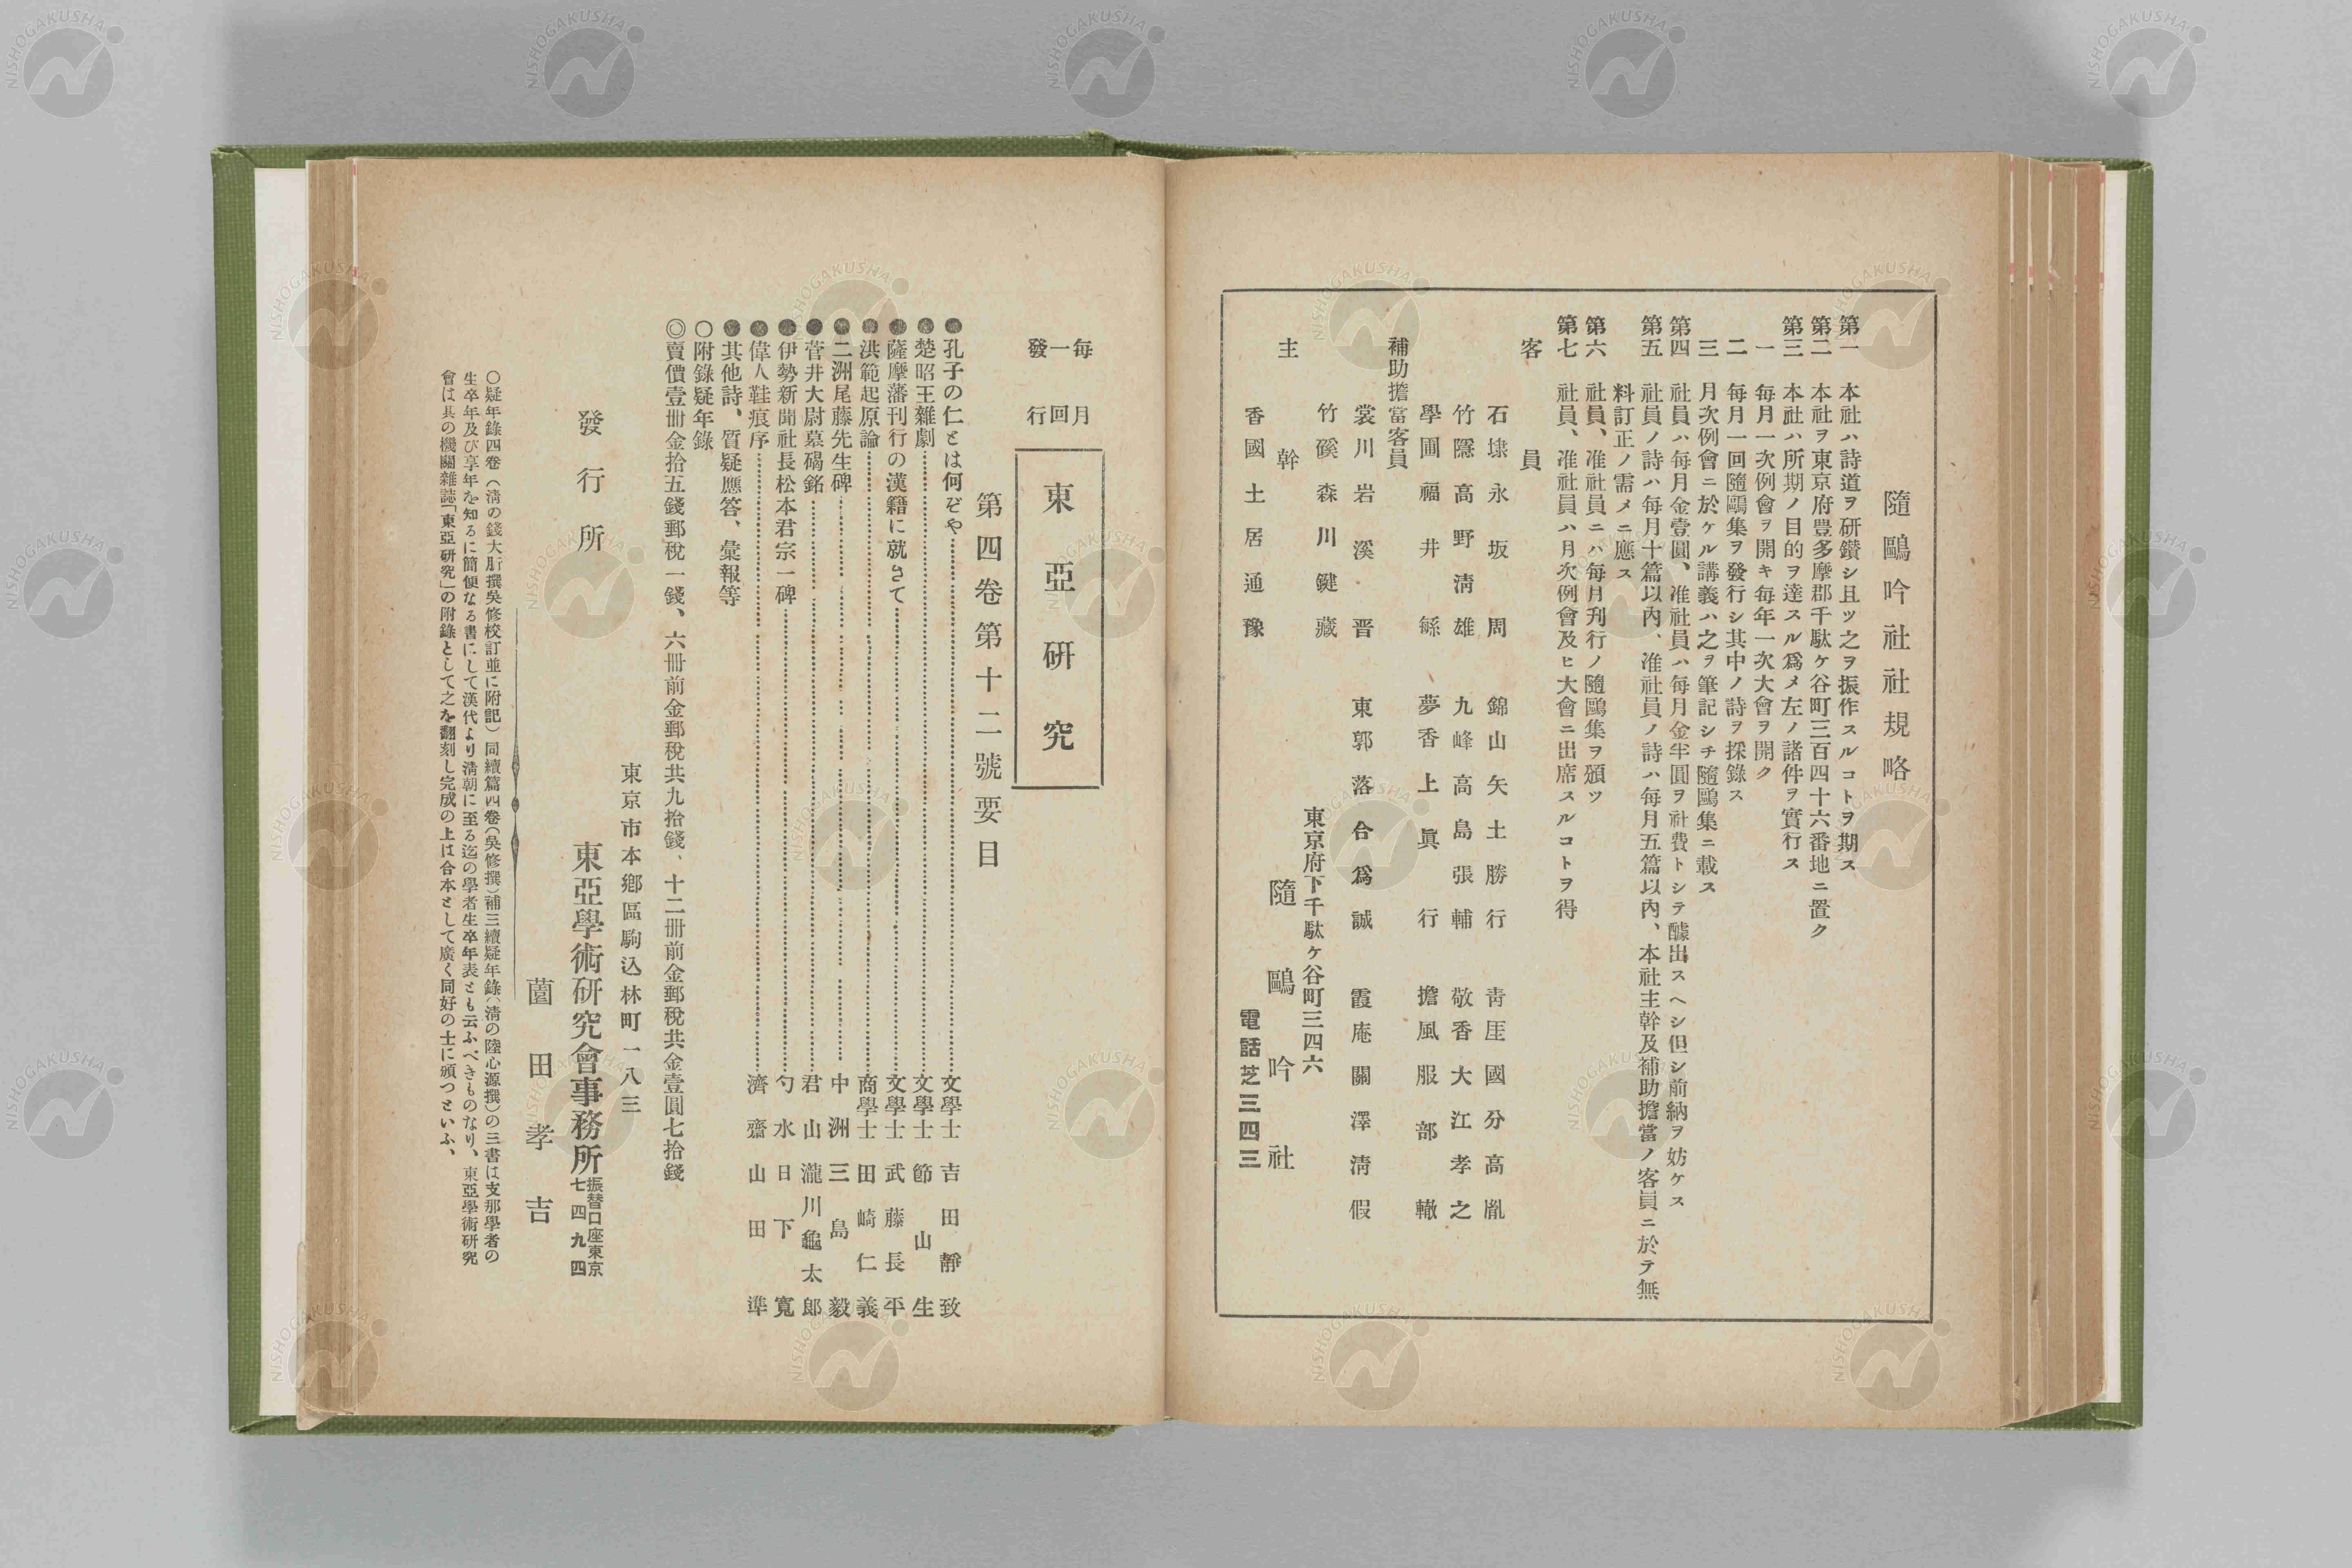 隨鷗吟社社規略
第一　本社ハ詩道ヲ研鑽シ且ツ之ヲ振作スルコトヲ期ス
第二　本社ヲ東京府豐多摩郡千駄ケ谷町三百四十六番地ニ置ク
第三　本社ハ所期ノ目的ヲ達スル爲メ左ノ諸件ヲ實行ス
一　每月一次例會ヲ開キ每年一次大會ヲ開ク
二　每月一回隨鷗集ヲ發行シ其中ノ詩ヲ採錄ス
三　月次例會ニ於ケル講義ハ之ヲ筆記シテ隨鷗集ニ載ス
第四　社員ハ每月金壹圓、准社員ハ每月金半圓ヲ社費トシテ醵出スヘシ但シ前納ヲ妨ケス
第五　社員ノ詩ハ每月十篇以內、准社員ノ詩ハ每月五篇以內、本社主幹及補助擔當ノ客員ニ於テ無
料訂正ノ需メニ應ス
第六　社員、准社員ニハ每月刊行ノ隨鷗集ヲ頒ツ
第七　社員、准社員ハ月次例會及ヒ大會ニ出席スルコトヲ得
客員
石埭永坂周　錦山矢土勝行　靑厓國分高胤
竹隱高野淸雄　九峰高島張輔　敬香大江孝之
學圃福井繇　夢香上眞行　擔風服部轍
補助擔當客員
裳川岩溪晋　東郭落合爲誠　霞庵關澤淸假
竹磎森川鍵藏
主幹
香國土居通豫
東京府下千駄ケ谷町三四六
隨鷗吟社
電話芝三四三
每月一回發行
東亞硏究
第四卷第十二號要目
●孔子の仁とは何ぞや……文學士　吉田靜致
●楚昭王雜劇……文學士　節山生
●薩摩藩刊行の漢籍に就きて……文學士　武藤長平
●洪範起原論……商學士　田崎仁義
●二洲尾藤先生碑……中洲三島毅
●菅井大尉墓碣銘……君山瀧川龜太郎
●伊勢新聞社長松本君宗一碑……勺水日下寬
●偉人鞋痕序……濟齋山田準
●其他詩、質疑應答、彙報等
○附錄疑年錄
◎賣價壹冊金拾五錢郵稅一錢、六冊前金郵稅共九拾錢、十二冊前金郵稅共金壹圓七拾錢
東京市本鄕區駒込林町一八三
發行所　東亞學術硏究會事務所
振替口座東京
七四九四
薗田孝吉
○疑年錄四卷（淸の錢大昕撰吳修校訂並に附記）同續篇四卷（吳修撰）補三續疑年錄（淸の陸心源撰）の三書は支那學者の
生卒年及び享年を知るに簡便なる書にして漢代より淸朝に至る迄の學者生卒年表とも云ふべきものなり、東亞學術硏究
會は其の機關雜誌「東亞硏究」の附錄として之を翻刻し完成の上は合本として廣く同好の士に頒つといふ、
NISHOGAKUSHA